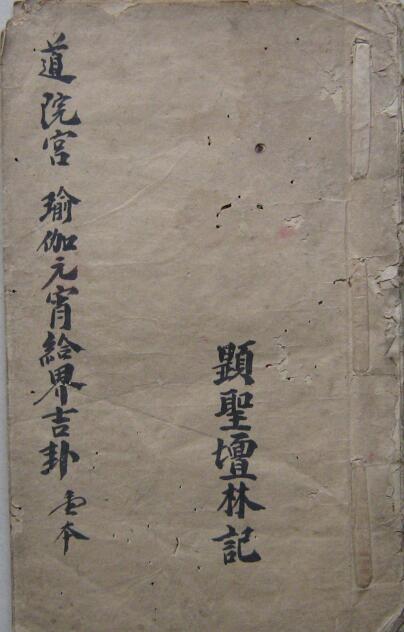 顕聖壇林記
道院宮 瑜伽元宵給界吉卦 本